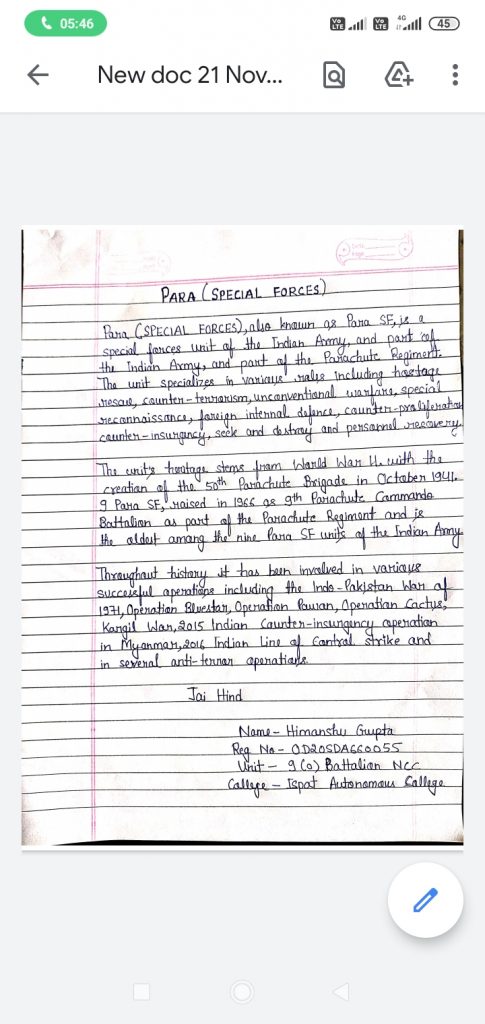 05:46
Vo LTE
Vo LTE
4G
45
New doc 21 Nov...
PARA (SPECIAL FORCES)
Para (SPECIAL FORCES), also known as Para SF, is a
special forces unit of the Indian Army, and part of
the Indian Army, and part of the Parachute Regiment.
The unit specializes in various roles including hostage
rescue, counter-terrorism, unconventional warfare, special
reconnaissance, foreign internal defence, counter-proliferation
counter-insurgency, seek and destroy and personnel recovery.
The unit's heratage stems from World War II. with the
creation of the 50th Parachute Brigade in October 1941.
9 Para SF, raised in 1966 as 9th Parachute Commando
Battalion as part of the Parachute Regiment and is
the oldest among the nine Para SF units of the Indian Army
Throughout history it has been involved in various
successful operations including the Indo-Pakistan War of
1971, Operation Bluestar, Operation Pawan, Operation Cactus,
Kargil War, 2015 Indian Counter-insurgency operation
in Myanmar, 2016 Indian Line of Control strike and
in several anti-terror operations.
Jai Hind
Name - Himanshu Gupta
Reg. No - OD20SDA660055
Unit - 9 (O) Battalion NCC
College - Ispat Autonomous College.